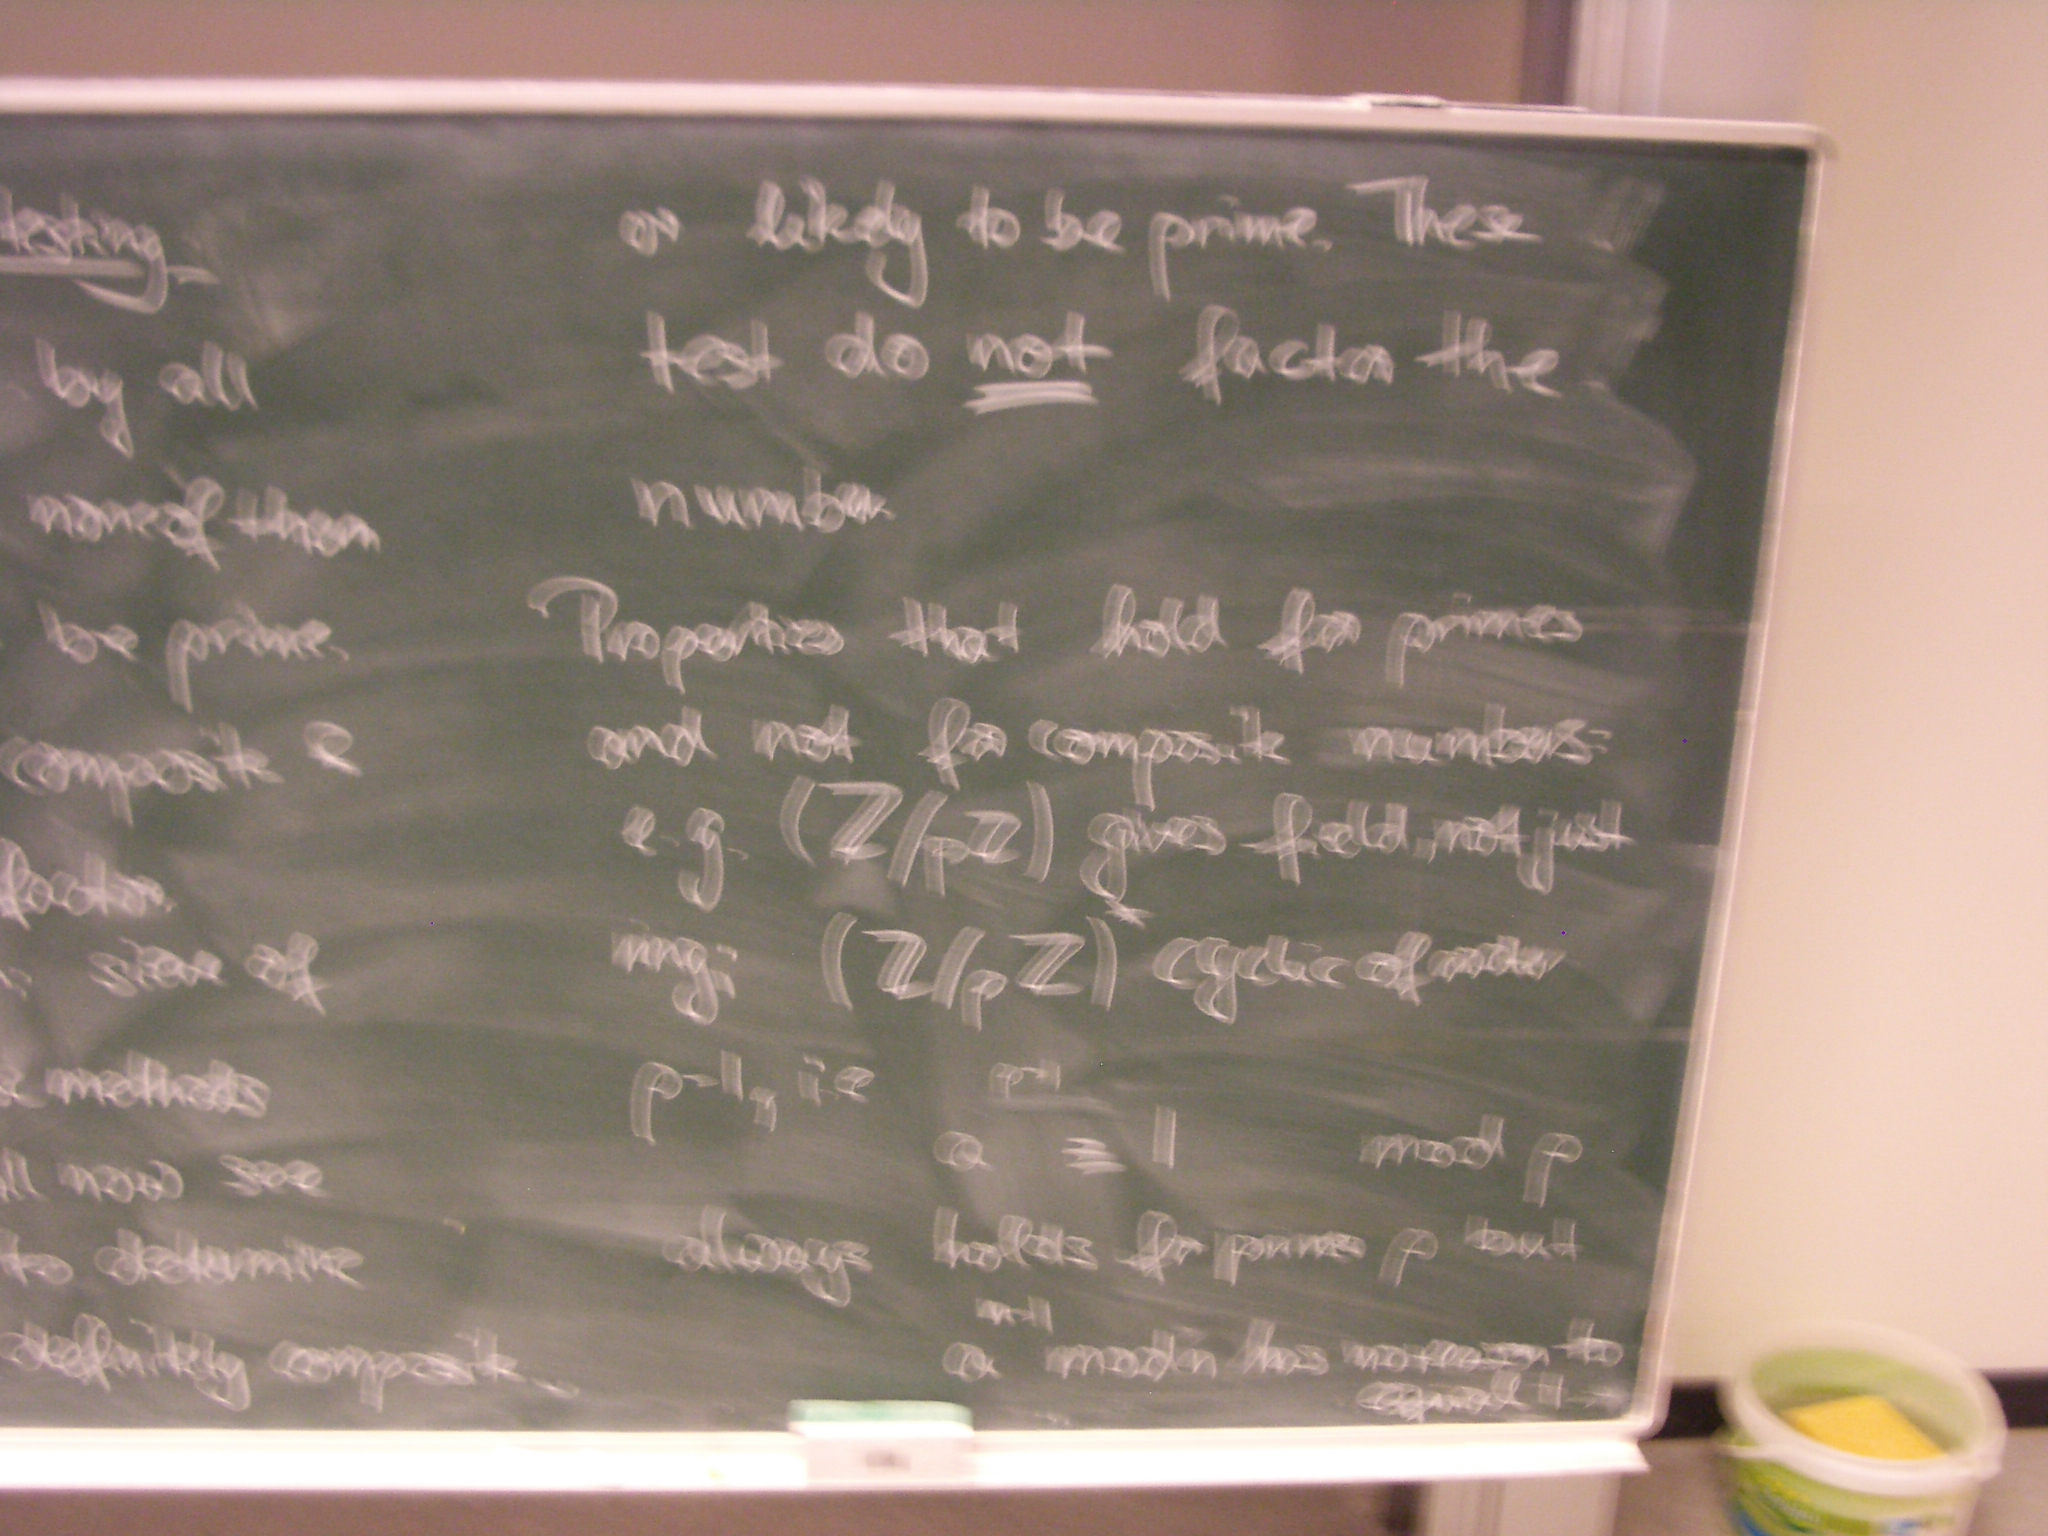 testing
by all
none of them
be prime.
composite &
factor
size of
methods
ll now see
to determine
definitely composite
or likely to be prime. These
test do not factor the
number
Properties that hold for primes
and not for composite numbers:
e.g. (Z/pZ) gives field, not just
ring; (Z/pZ)* cyclic of order
p-1, i.e
a^{p-1} ≡ 1 mod p
always holds for primes p but
a^{n-1} mod n has no reason to
equal 1